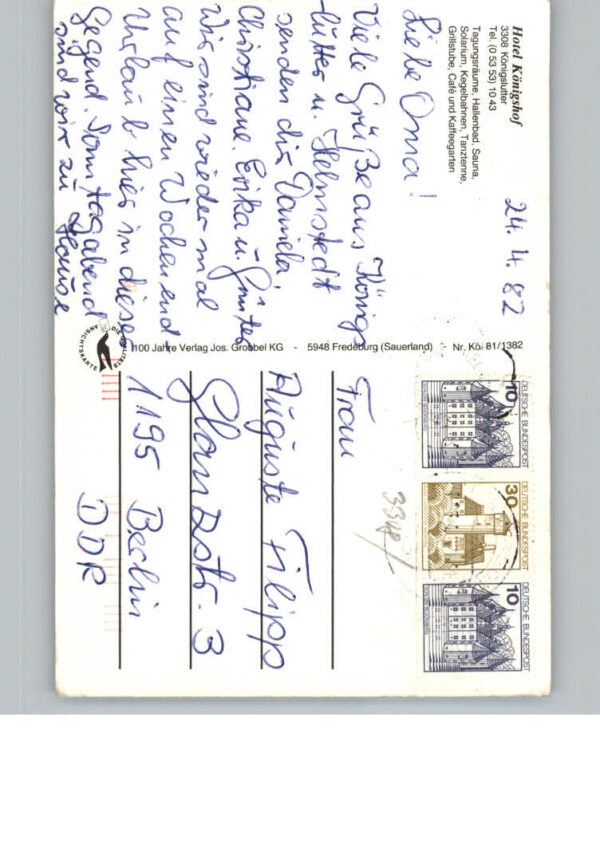 Hotel Königshof
3308 Königslutter
Tel. (0 53 53) 10 43
Tagungsräume, Hallenbad, Sauna,
Solarium, Kegelbahnen, Tanztenne,
Grillstube, Café und Kaffeegarten
24. 4. 82
Liebe Oma!
Viele Grüße aus Königs
lutter u. Helmstedt
senden dir Daniela,
Christiane, Erika u. Günter
Wir sind wieder mal
auf einen Wochenend
Urlaub hier in diese
Gegend. Sonntagabend
sind wir zu Hause
100 Jahre Verlag Jos. Grobbel KG - 5948 Fredeburg (Sauerland) - Nr. Kö 81/1382
DIE
ANSICHTSKARTE
10
DEUTSCHE BUNDESPOST
30
DEUTSCHE BUNDESPOST
10
DEUTSCHE BUNDESPOST
3348
Frau
Auguste Filipp
Glanzstr. 3
1195 Berlin
DDR